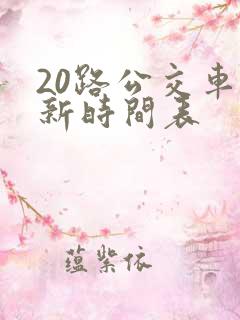 20路公交车
新時間表
蕴紫依